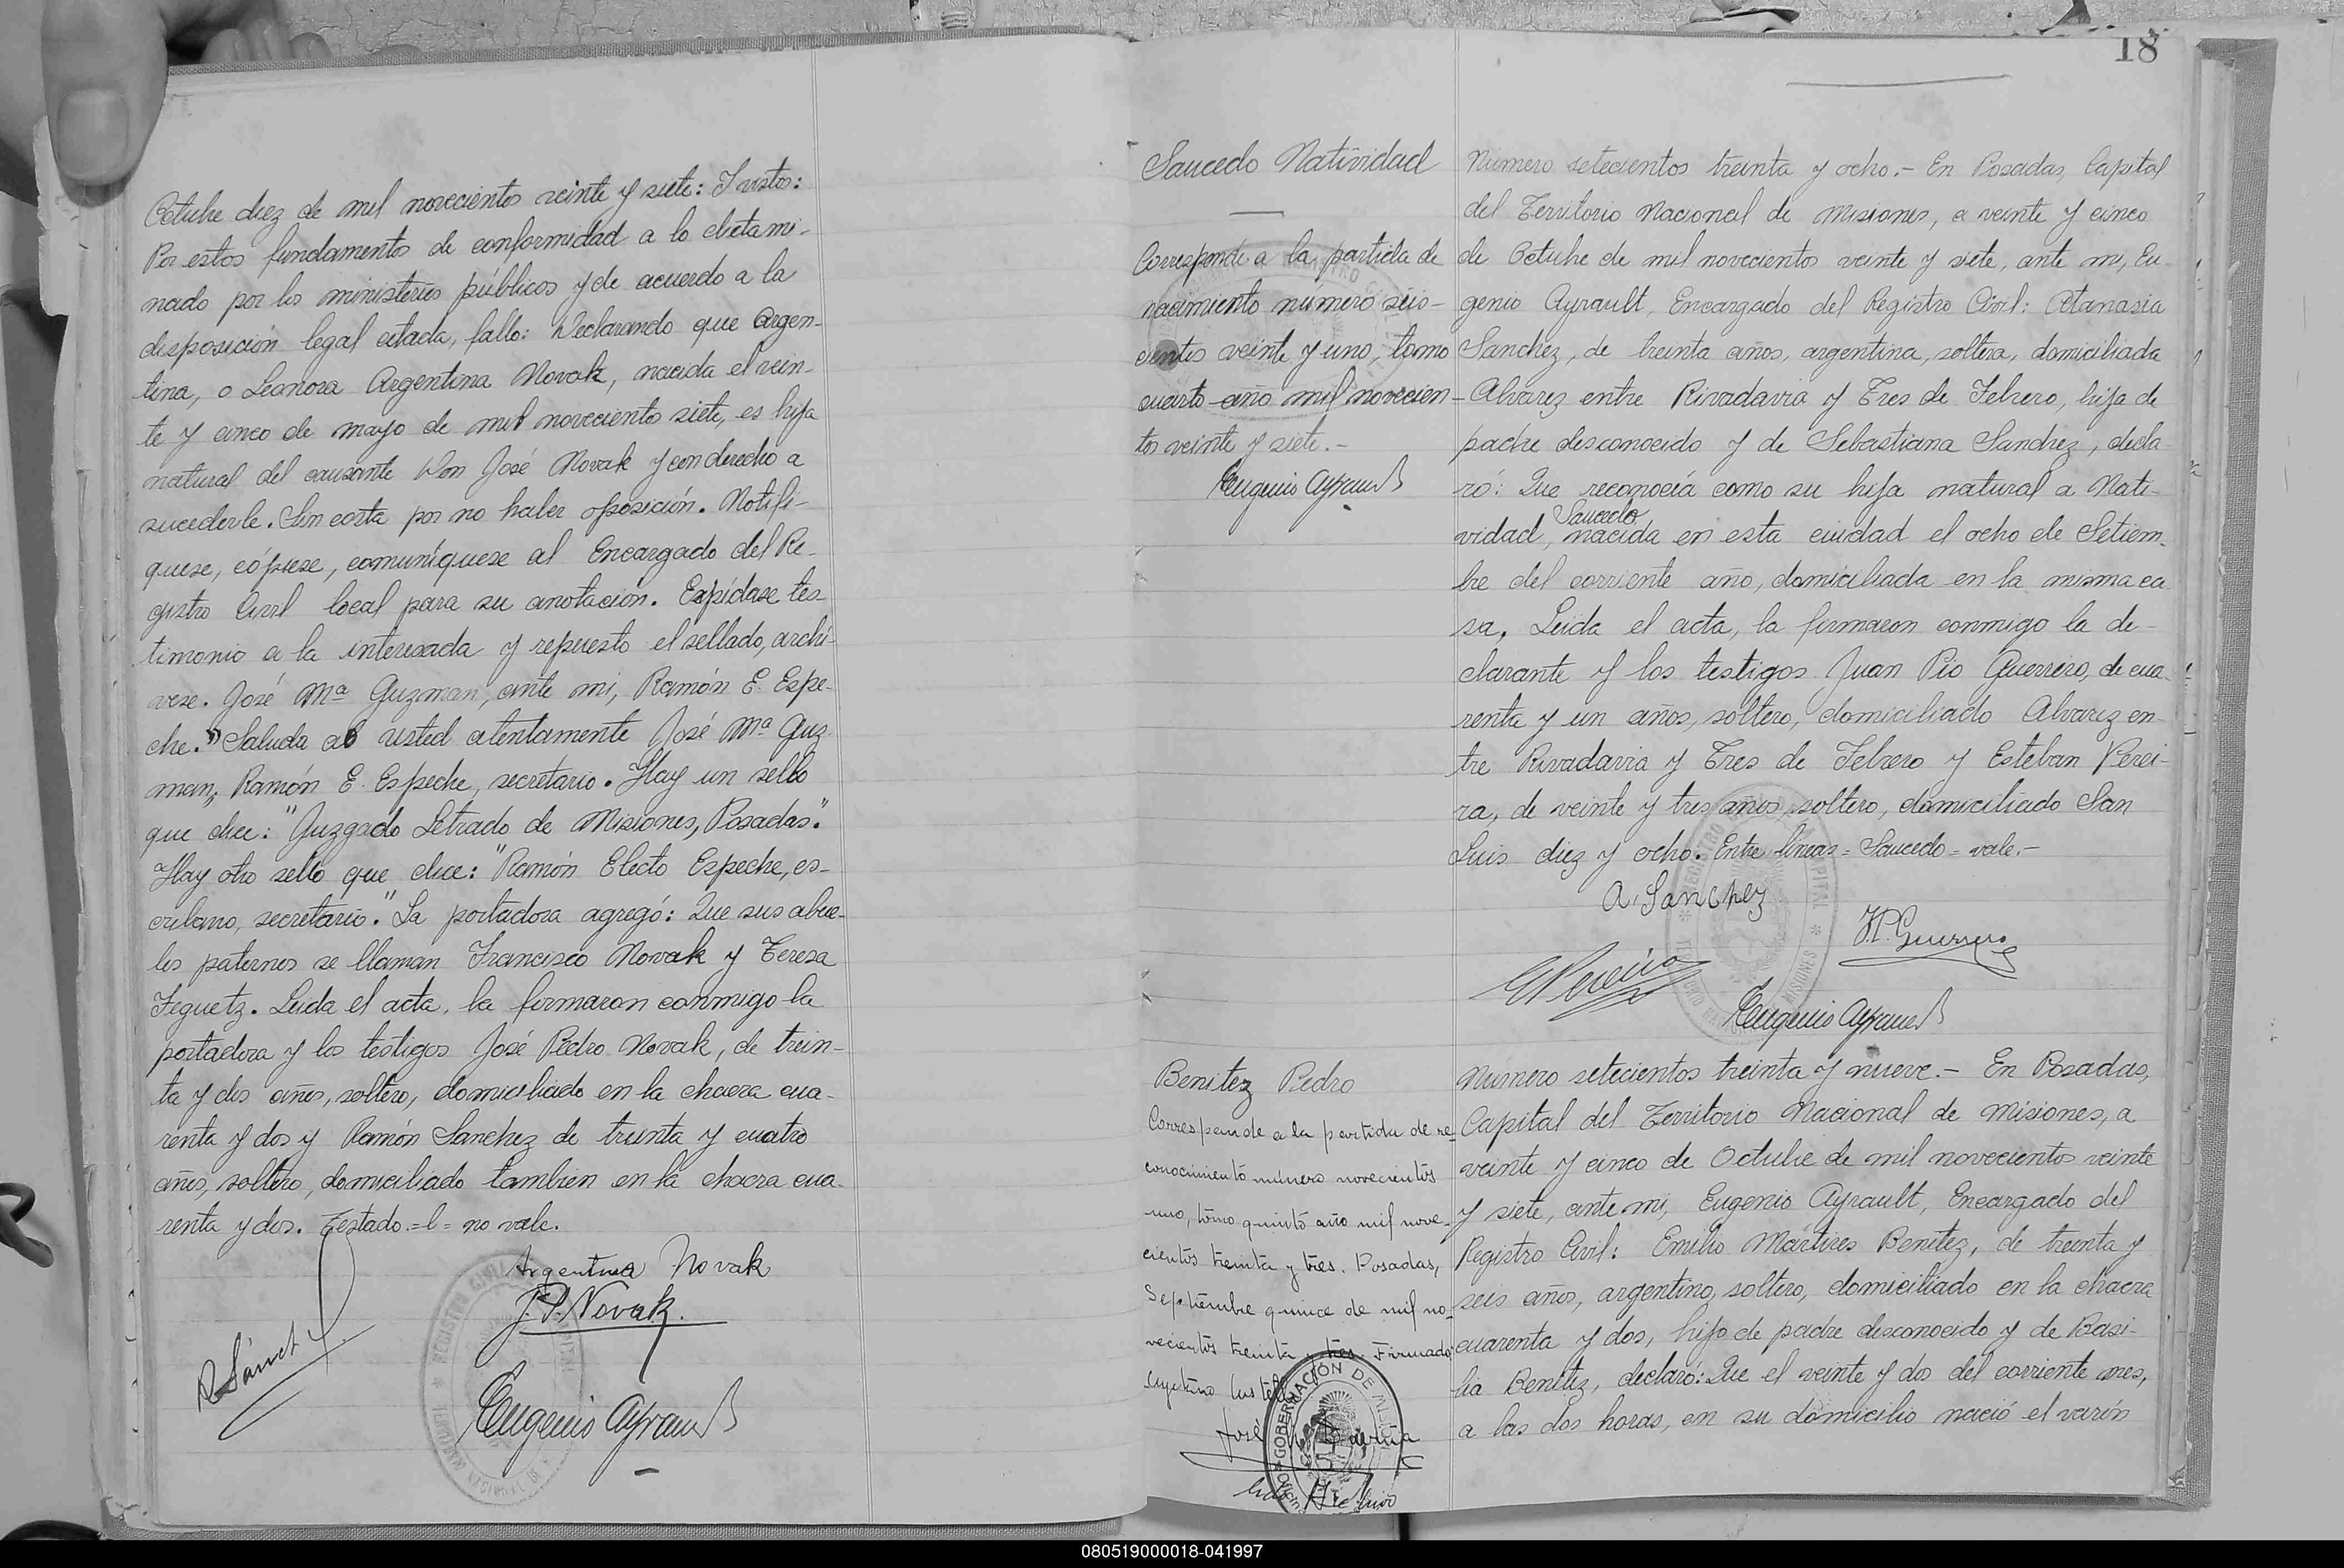 Octubre diez de mil novecientos veinte y siete: Y vistos:
Por estos fundamentos de conformidad a lo dictami-
nado por los ministerios públicos y de acuerdo a la
disposición legal citada, fallo: Declarando que Argen-
tina, o Leonora Argentina Novak, nacida el vein-
te y cinco de mayo de mil novecientos siete, es hija
natural del causante Don José Novak y con derecho a
sucederle. Sin costa por no haber oposición. Notifi-
quese, cópiese, comuníquese al Encargado del Re-
gistro Civil local para su anotación. Expídase tes-
timonio a la interesada y repuesto el sellado, archí-
vese. José Mª Guzman, ante mi, Ramón E. Espe-
che." Saluda a usted atentamente José Mª Guz-
man, Ramón E. Espeche, secretario. Hay un sello
que dice: "Juzgado Letrado de Misiones, Posadas."
Hay otro sello que dice: "Ramón Electo Espeche, es-
cribano, secretario." La portadora agregó: Que sus abue-
los paternos se llaman Francisco Novak y Teresa
Feguetz. Leida el acta, la firmaron conmigo la
portadora y los testigos José Pedro Novak, de trein-
ta y dos años, soltero, domiciliado en la chacra cua-
renta y dos y Ramón Sanchez de treinta y cuatro
años, soltero, domiciliado tambien en la chacra cua-
renta y dos. Testado.=l= no vale.
Argentina Novak
J. P. Novak.
R Sánchez
Eugenio Ayrault
18
Saucedo Natividad
Corresponde a la partida de
nacimiento número seis-
cientos veinte y uno, tomo
cuarto año mil novecien-
tos veinte y siete.-
Eugenio Ayrault
Número setecientos treinta y ocho.- En Posadas, Capital
del Territorio Nacional de Misiones, a veinte y cinco
de Octubre de mil novecientos veinte y siete, ante mi, Eu-
genio Ayrault, Encargado del Registro Civil: Atanasia
Sanchez, de treinta años, argentina, soltera, domiciliada
Alvarez entre Rivadavia y Tres de Febrero, hija de
padre desconocido y de Sebastiana Sanchez, decla-
ró: Que reconocía como su hija natural a Nati-
Saucedo
vidad, nacida en esta ciudad el ocho de Setiem-
bre del corriente año, domiciliada en la misma ca
sa. Leida el acta, la firmaron conmigo la de-
clarante y los testigos Juan Pio Guerrero, de cua-
renta y un años, soltero, domiciliado Alvarez en-
tre Rivadavia y Tres de Febrero y Esteban Perei-
ra, de veinte y tres años, soltero, domiciliado San
Luis diez y ocho. Entre líneas = Saucedo = vale.-
A. Sanchez
J.P. Guerrero
E Pereira
Eugenio Ayrault
Benitez Pedro
Corresponde a la partida de re-
conocimiento número novecientos
uno, tomo quinto año mil nove-
cientos treinta y tres. Posadas,
Septiembre quince de mil no-
vecientos treinta y tres. Firmado:
José
GOBERNACIÓN DE MISIONES
Número setecientos treinta y nueve.- En Posadas,
Capital del Territorio Nacional de Misiones, a
veinte y cinco de Octubre de mil novecientos veinte
y siete, ante mi, Eugenio Ayrault, Encargado del
Registro Civil: Emilio Mártires Benitez, de treinta y
seis años, argentino, soltero, domiciliado en la chacra
cuarenta y dos, hijo de padre desconocido y de Basi-
lia Benitez, declaró: Que el veinte y dos del corriente mes,
a las dos horas, en su domicilio nació el varón
080519000018-041997